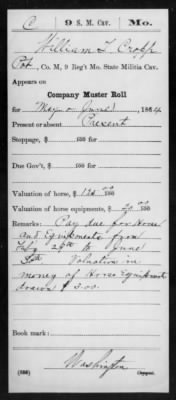 C | 9 S. M. Cav. | Mo.
William L Cropp
Pvt., Co. M, 9 Reg't Mo. State Militia Cav.
Appears on
Company Muster Roll
for May & June, 1864
Present or absent Present
Stoppage, $ 100 for
Due Gov't, $ 100 for
Valuation of horse, $ 120 00/100
Valuation of horse equipments, $ 20 00/100
Remarks: Pay due for Horse
and Equipments from
Feby 29th to June
30th Valuation in
money of Horse Equipments
drawn $ 3.00.
Book mark:
Washington
(356) Copyist.